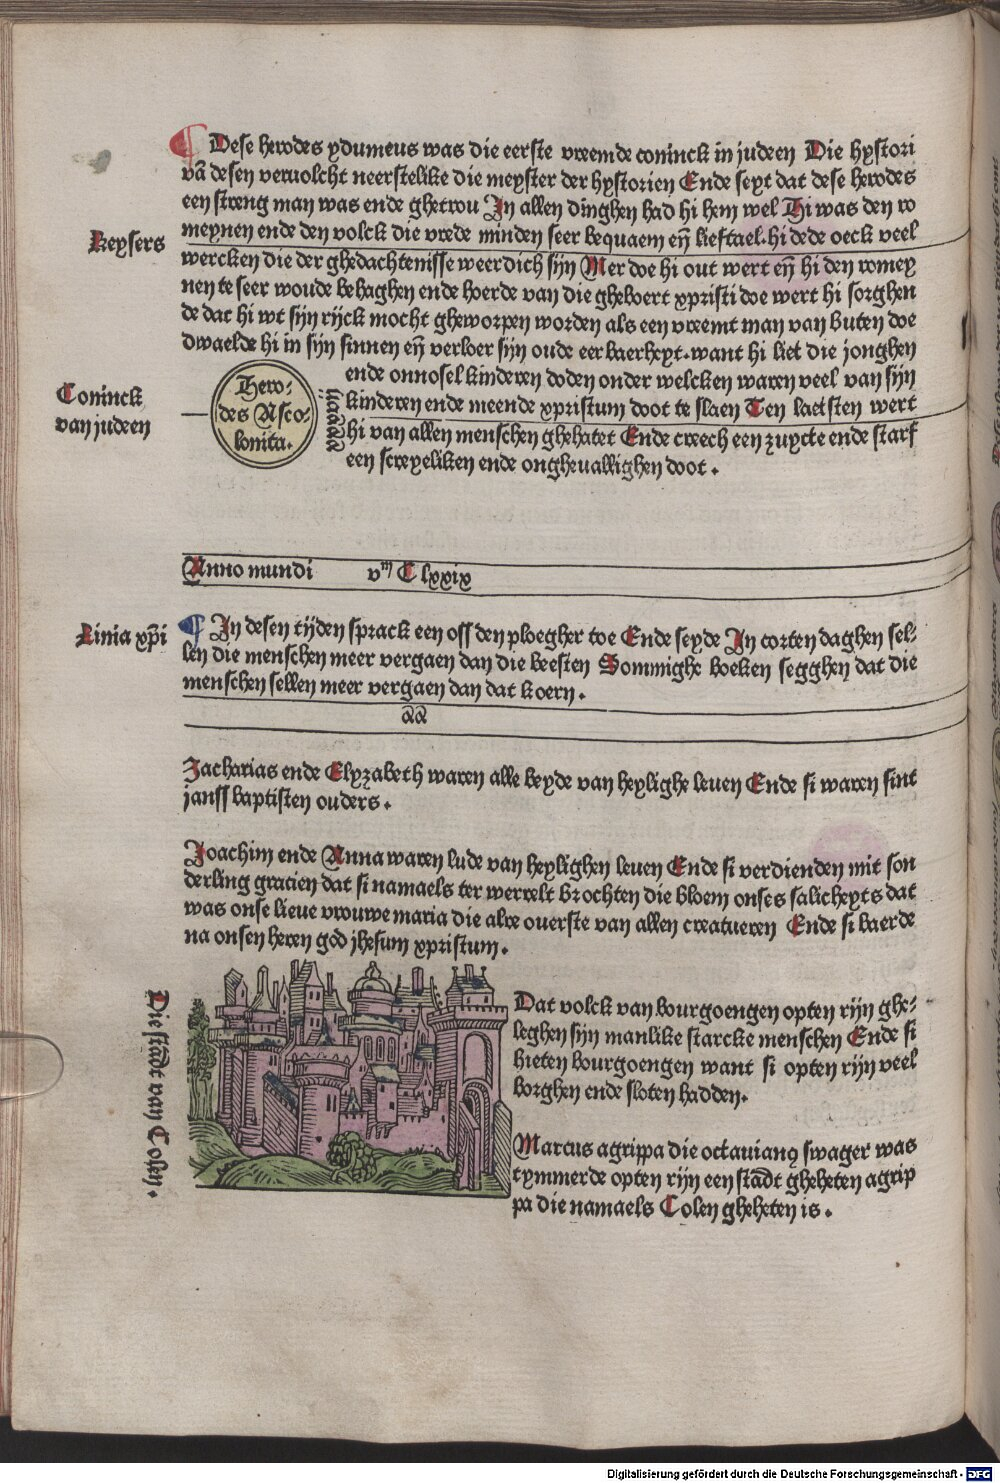 ¶ Dese herodes ydumeus was die eerste vreemde coninck in judeen Die hystori
vā desen veruolcht neerstelike die meyster der hystorien Ende seyt dat dese herodes
een streng man was ende ghetrou In allen dinghen had hi hem wel Hi was den ro
meynen ende den volck die vrede minden seer bequaem eñ lieftael. hi dede oeck veel
Keysers
wercken die der ghedachtenisse weerdich sijn Mer doe hi out wert eñ hi den romey
nen te seer woude behaghen ende hoerde van die gheboert xpristi doe wert hi sorghen
de dat hi wt sijn rijck mocht gheworpen worden als een vreemt man van buten doe
dwaelde hi in sijn sinnen eñ verloer sijn oude eerbaerheyt. want hi liet die jonghen
ende onnosel kinderen doden onder welcken waren veel van sijn
kinderen ende meende xpristum doot te slaen Ten laetsten wert
hi van allen menschen ghehatet Ende creech een zuycte ende starf
een screyeliken ende ongheuallighen doot.
Coninck
van judeen
Hero-
des Asco-
lonita.
Anno mundi vᵐ C lxxix
Linia xp̄i
¶ In desen tijden sprack een oss den ploegher toe Ende seyde In corten daghen sel-
len die menschen meer vergaen dan die beesten Sommighe boeken segghen dat die
menschen sellen meer vergaen dan dat koern.
Zacharias ende Elyzabeth waren alle beyde van heylighe leuen Ende si waren sint
janss baptisten ouders.
Joachim ende Anna waren lude van heylighen leuen Ende si verdienden mit son
derling gracien dat si namaels ter werrelt brochten die bloem onses salicheyts dat
was onse lieue vrouwe maria die alre ouerste van allen creatueren Ende si baerde
na onsen heren god jhesum xpristum.
Die stadt van Colen.
Dat volck van bourgoengen opten rijn ghe-
leghen sijn manlike starcke menschen Ende si
hieten bourgoengen want si opten rijn veel
borghen ende sloten hadden.
Marcus agrippa die octauianꝰ swager was
tymmerde opten rijn een stadt gheheten agrip
pa die namaels Colen gheheten is.
Digitalisierung gefördert durch die Deutsche Forschungsgemeinschaft - DFG